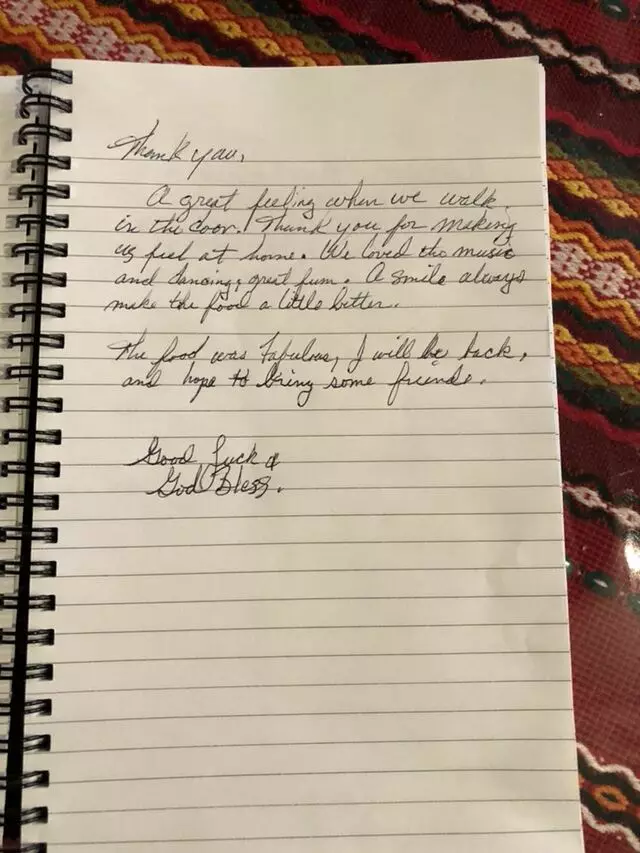 Thank you,
A great feeling when we walk
in the door. Thank you for making
us feel at home. We loved the music
and dancing, great fun. A smile always
make the food a little better.
The food was fabulous, I will be back,
and hope to bring some friends.
Good luck &
God Bless.